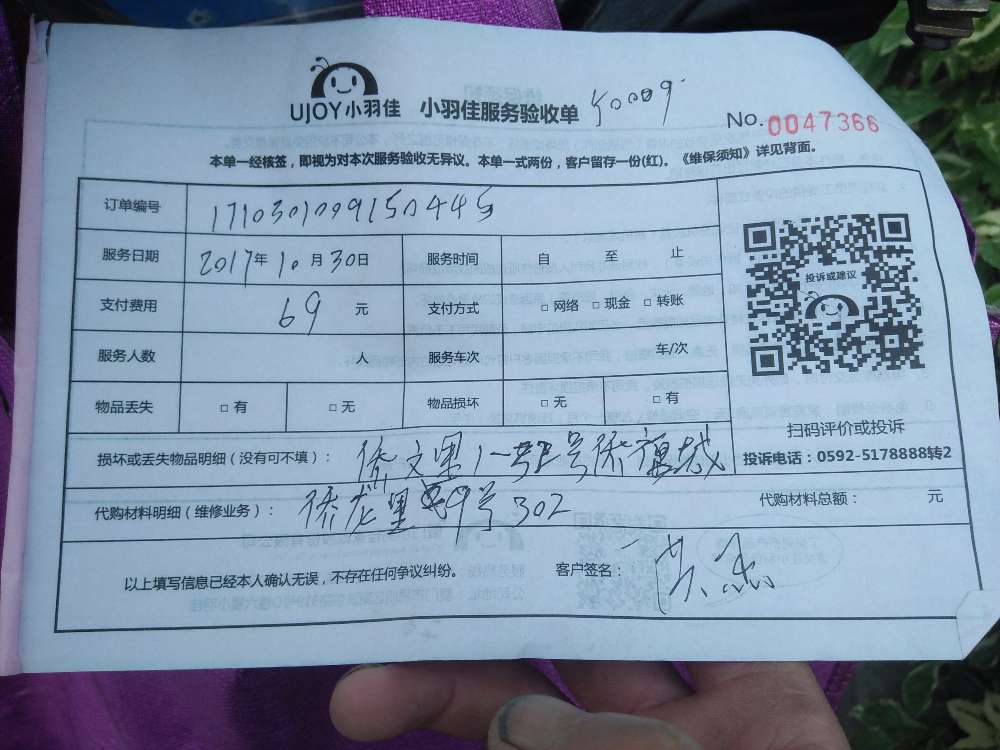 UJOY小羽佳 小羽佳服务验收单
No. 0047366
本单一经核签，即视为对本次服务验收无异议。本单一式两份，客户留存一份(红)。《维保须知》详见背面。
订单编号 171030109150445
服务日期 2017年10月30日 服务时间 自 至 止
支付费用 69 元 支付方式 □ 网络 □ 现金 □ 转账
服务人数 人 服务车次 车/次
物品丢失 □ 有 □ 无 物品损坏 □ 无 □ 有
投诉或建议
扫码评价或投诉
投诉电话：0592-5178888转2
损坏或丢失物品明细（没有可不填）：
代购材料明细（维修业务）： 侨龙里 号302 代购材料总额： 元
以上填写信息已经本人确认无误，不存在任何争议纠纷。 客户签名：